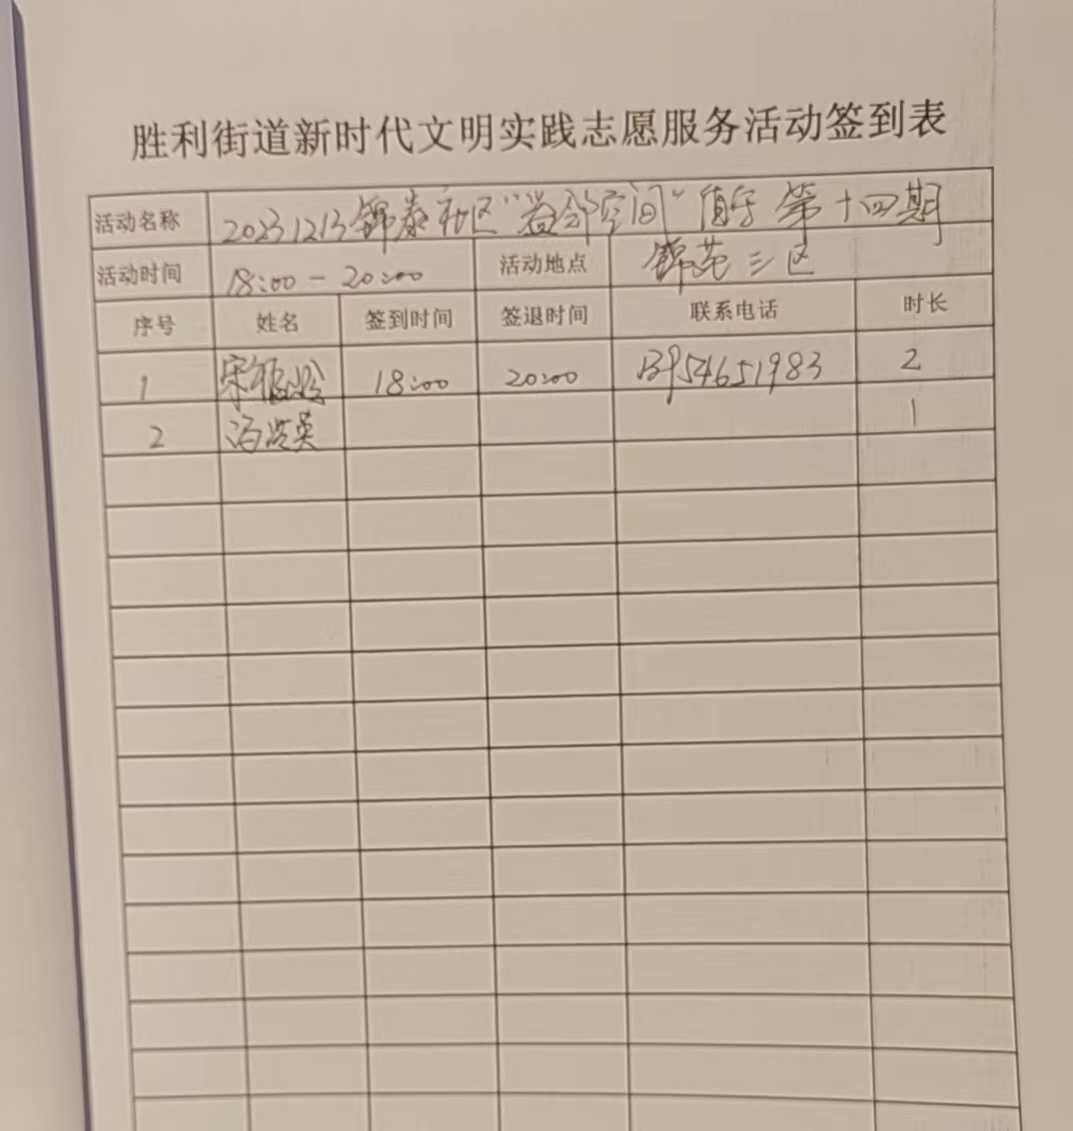 胜利街道新时代文明实践志愿服务活动签到表
活动名称 20231213锦泰社区“益邻空间”值守 第十四期
活动时间 18:00-20:00 活动地点 锦苑三区
序号 姓名 签到时间 签退时间 联系电话 时长
1 宋 18:00 20:00 54651983 2
2 冯 英 1